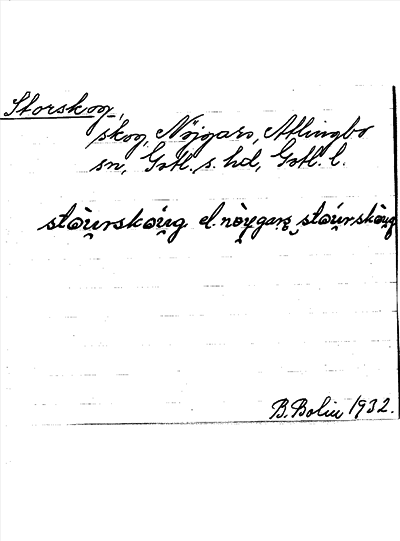 Storskog,
skog, Nöjgars, Atlingbo
sn, Gotl. s. hd, Gotl. l.
stòu̯rskòu̯g el. nòi̯gaʀs stóu̯rskòu̯g
B. Bolin 1932.